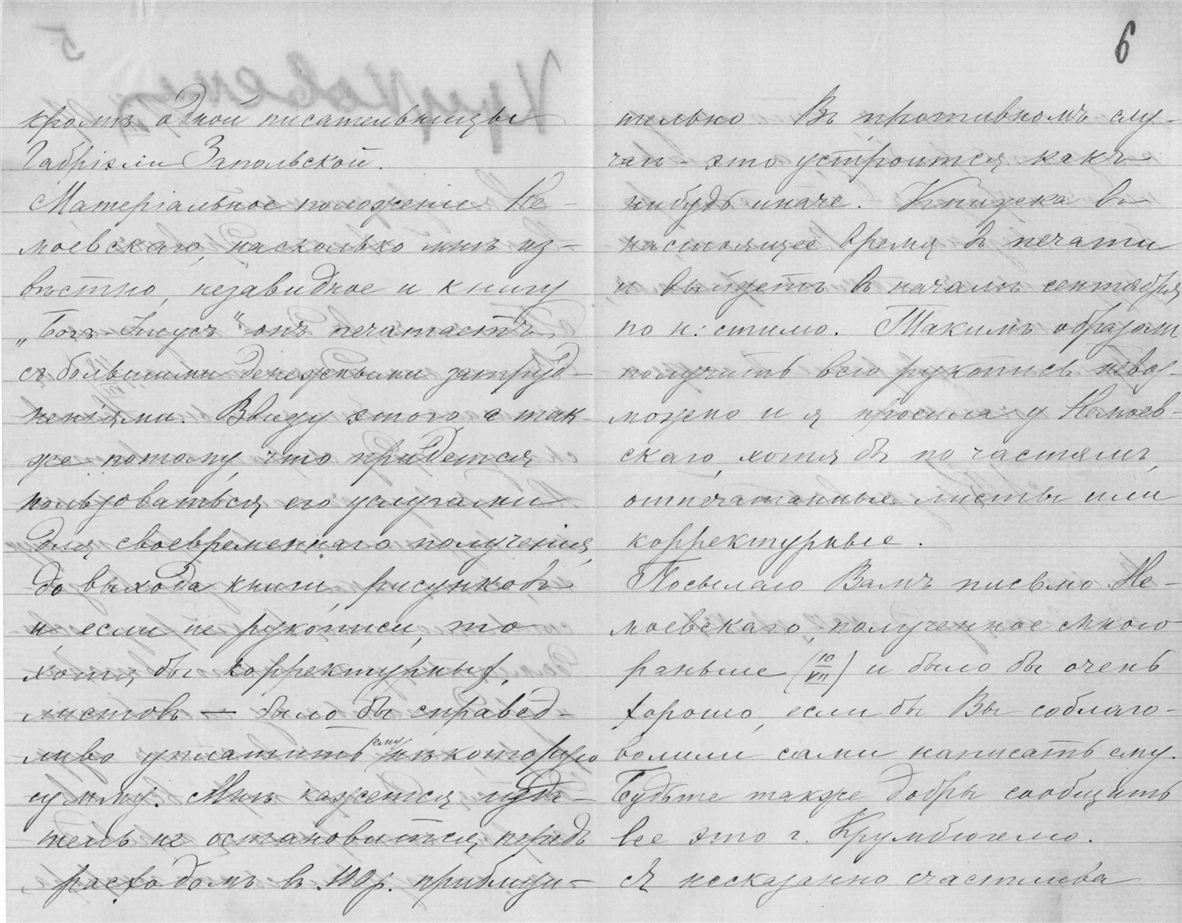 5
кромѣ одной писательницы
Габріэли Запольской.
Матеріальное положеніе Не-
моевскаго, насколько мнѣ из-
вѣстно, незавидное и книгу
„Богъ Іисусъ" онъ печатаетъ
съ большими денежными затруд-
неніями. Ввиду этого а так-
же потому, что придется
пользоваться его услугами
для своевременнаго полученія,
до выхода книги рисунковъ
и, если не рукописи, то
хотя бы корректурныхъ
листовъ — было бы справед-
ливо уплатить ему нѣкоторую
сумму. Мнѣ кажется изда-
тель не остановится передъ
расходомъ в 100 р. приблизи-
6
тельно Въ противномъ слу-
чаѣ - это устроится какъ
нибудь иначе. Книжка въ
настоящее время в печати
и выйдетъ в началѣ сентября
по н: стилю. Такимъ образомъ
получить всю рукопись невоз-
можно и я просила у Немоев-
скаго, хотя бъ по частямъ,
отпечатанные листы или
корректурные.
Посылаю Вамъ письмо Не-
моевскаго, полученное мною
раньше (10/VII) и было бы очень
хорошо, если бъ Вы соблаго-
волили сами написать ему.
Будьте также добры сообщить
все это г. Крумбюгелю.
Я несказанно счастлива